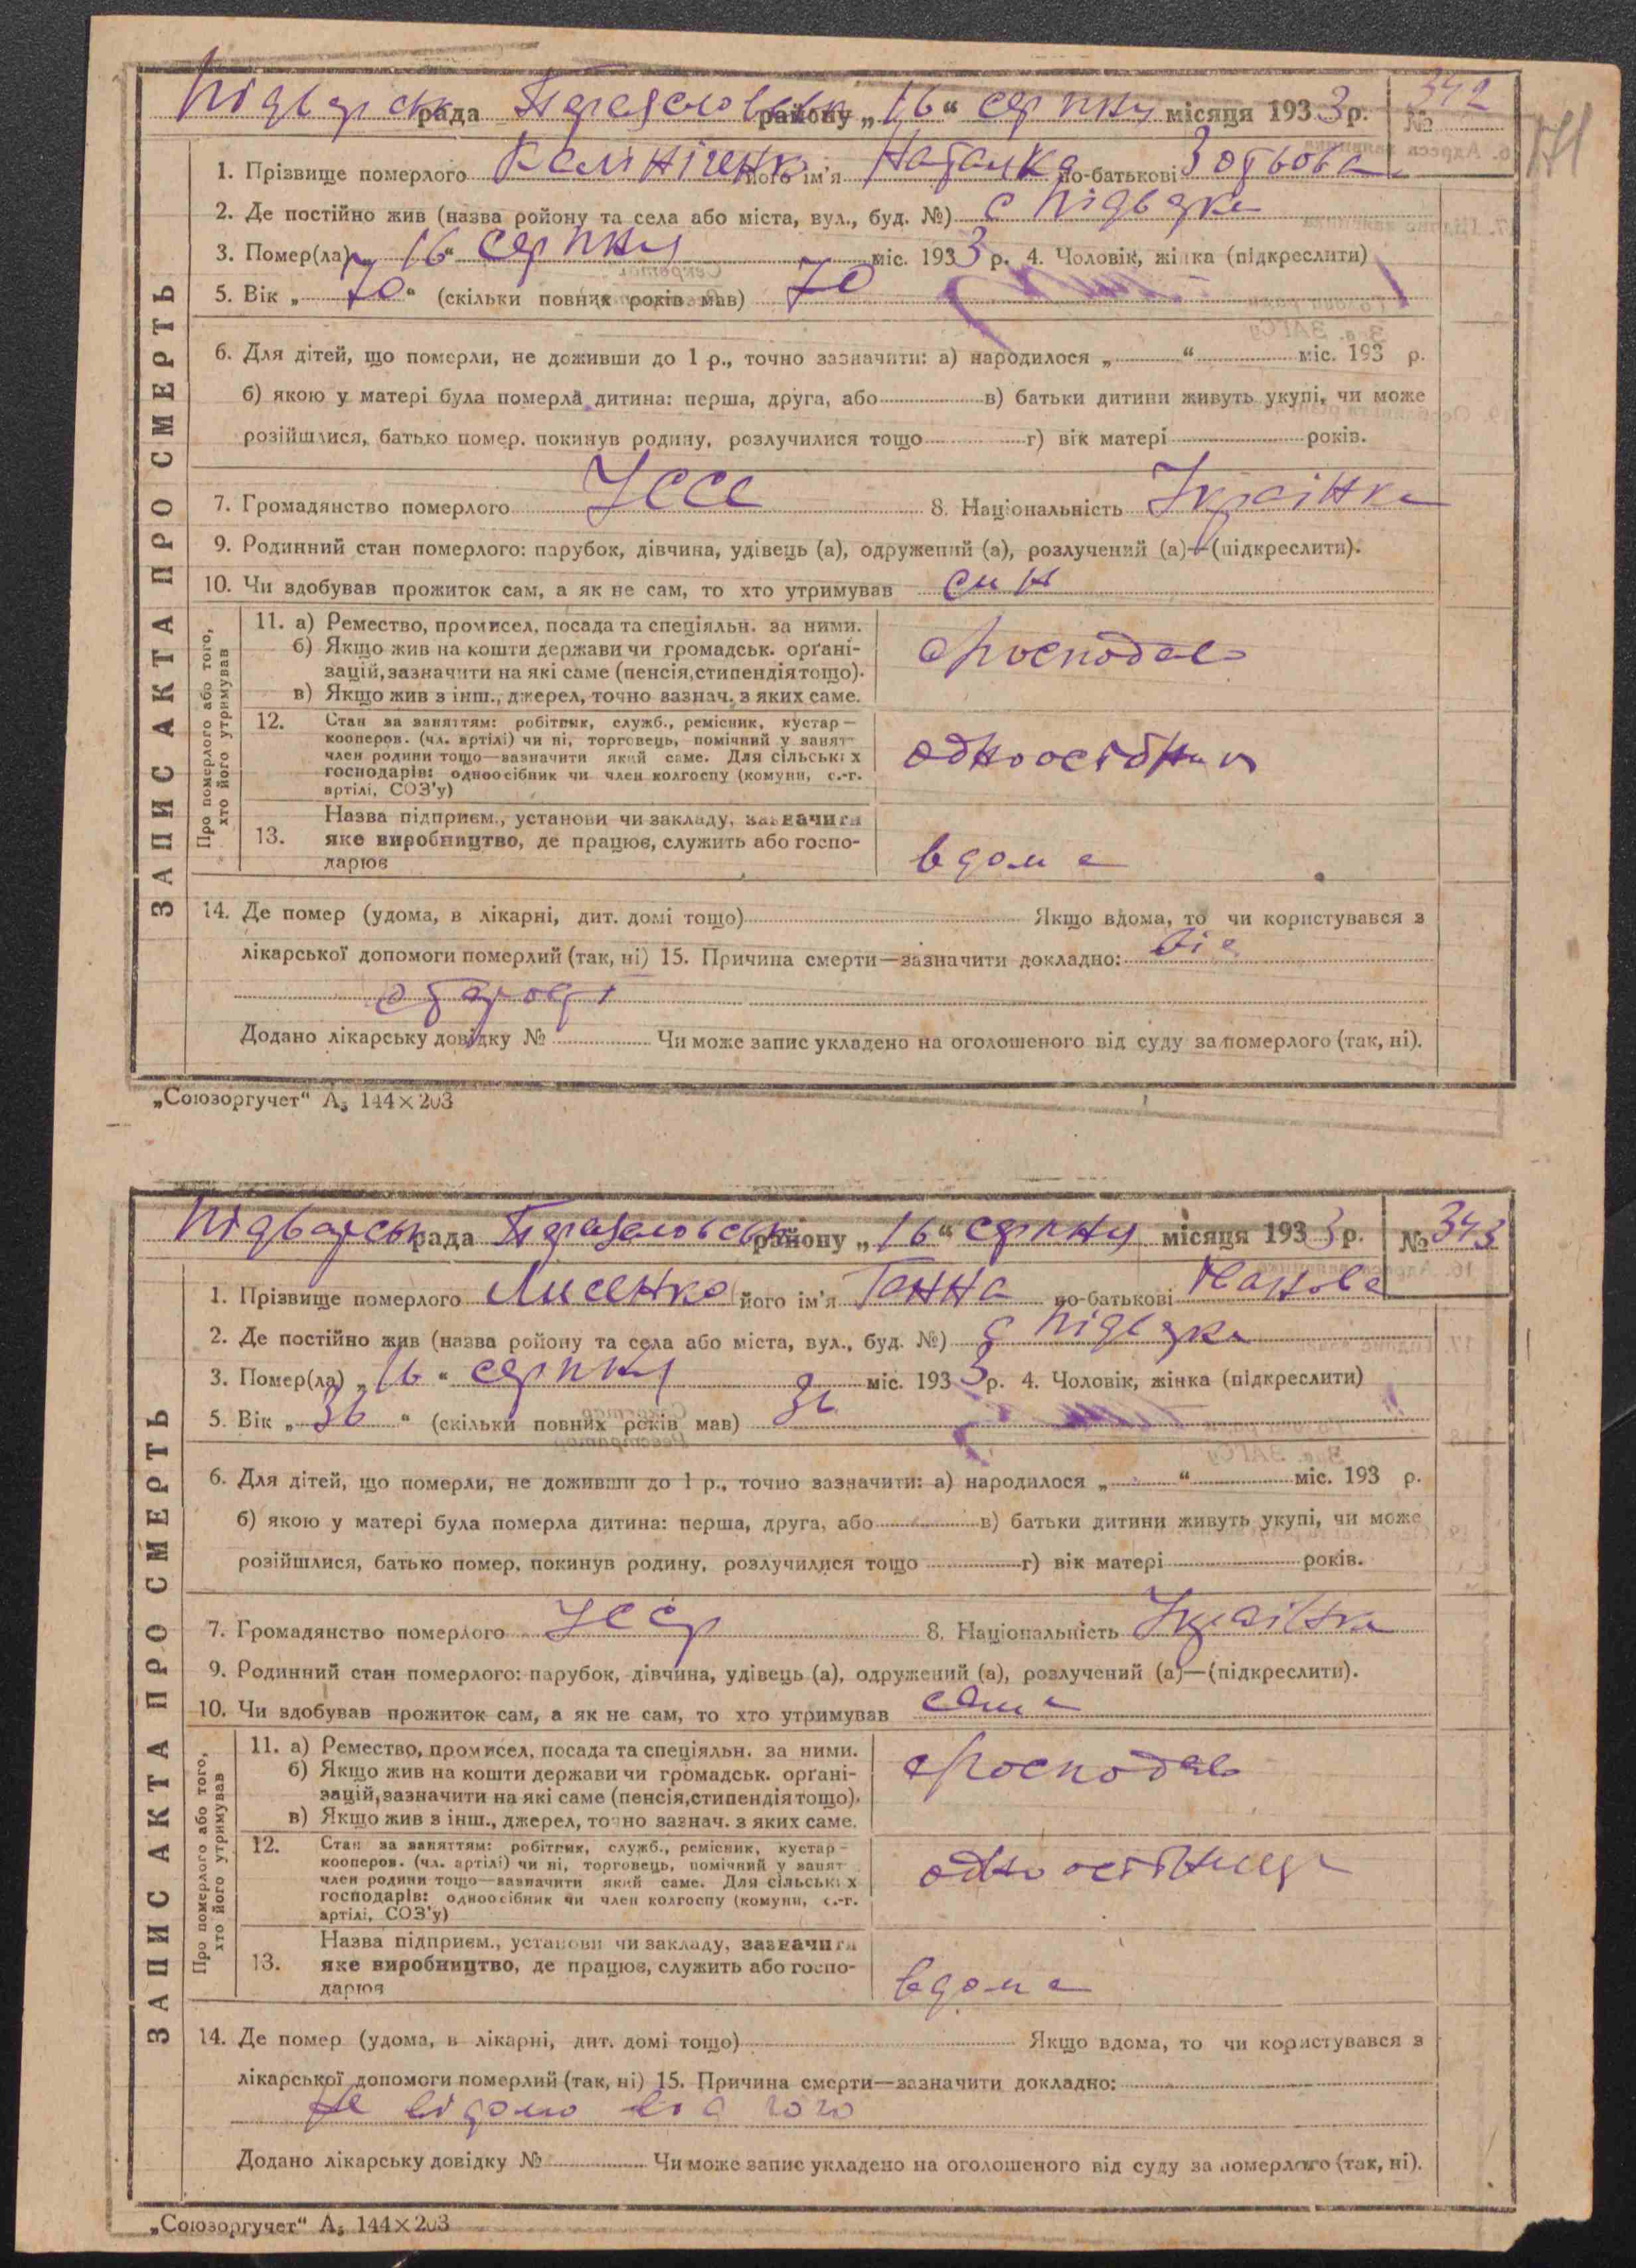 Підварська рада Переяславськ району „16“ серпня місяця 1933 р. № 342
171
1. Прізвище померлого Калініченко його ім'я Наталка по-батькові
2. Де постійно жив (назва ройону та села або міста, вул., буд. №) с Підварки
3. Помер(ла) „16“ серпня міс. 1933 р. 4. Чоловік, жінка (підкреслити)
5. Вік „70“ (скільки повних років мав) 70
6. Для дітей, що померли, не доживши до 1 р., точно зазначити: а) народилося „ “ міс. 193 р.
б) якою у матері була померла дитина: перша, друга, або в) батьки дитини живуть укупі, чи може
розійшлися, батько помер, покинув родину, розлучилися тощо г) вік матері років.
7. Громадянство померлого УССР 8. Національність Українка
9. Родинний стан померлого: парубок, дівчина, удівець (а), одружений (а), розлучений (а)—(підкреслити).
10. Чи здобував прожиток сам, а як не сам, то хто утримував син
ЗАПИС АКТА ПРО СМЕРТЬ
Про померлого або того, хто його утримував
11. а) Ремество, промисел, посада та спеціяльн. за ними.
б) Якщо жив на кошти держави чи громадськ. орґані-
зацій, зазначити на які саме (пенсія, стипендія тощо).
в) Якщо жив з інш., джерел, точно зазнач. з яких саме.
хоспода
12. Стан за заняттям: робітник, служб., ремісник, кустар—
кооперов. (чл. артілі) чи ні, торговець, помічний у занят-
член родини тощо—зазначити який саме. Для сільських
господарів: одноосібник чи член колгоспу (комуни, с.-г.
артілі, СОЗ'у)
одноосібник
13. Назва підприєм., установи чи закладу, зазначити
яке виробництво, де працює, служить або госпо-
дарює
вдома
14. Де помер (удома, в лікарні, дит. домі тощо) Якщо вдома, то чи користувався з
лікарської допомоги померлий (так, ні) 15. Причина смерти—зазначити докладно: від
старості
Додано лікарську довідку № Чи може запис укладено на оголошеного від суду за померлого (так, ні).
„Союзоргучет“ А5 144×203
Підварськ рада Переяславськ району „16“ серпня місяця 1933 р. № 343
1. Прізвище померлого Лисенко його ім'я Ганна по-батькові
2. Де постійно жив (назва ройону та села або міста, вул., буд. №) с Підварки
3. Помер(ла) „16“ серпня міс. 1933 р. 4. Чоловік, жінка (підкреслити)
5. Вік „36“ (скільки повних років мав) 36
6. Для дітей, що померли, не доживши до 1 р., точно зазначити: а) народилося „ “ міс. 193 р.
б) якою у матері була померла дитина: перша, друга, або в) батьки дитини живуть укупі, чи може
розійшлися, батько помер, покинув родину, розлучилися тощо г) вік матері років.
7. Громадянство померлого УССР 8. Національність Українка
9. Родинний стан померлого: парубок, дівчина, удівець (а), одружений (а), розлучений (а)—(підкреслити).
10. Чи здобував прожиток сам, а як не сам, то хто утримував сама
ЗАПИС АКТА ПРО СМЕРТЬ
Про померлого або того, хто його утримував
11. а) Ремество, промисел, посада та спеціяльн. за ними.
б) Якщо жив на кошти держави чи громадськ. орґані-
зацій, зазначити на які саме (пенсія, стипендія тощо).
в) Якщо жив з інш., джерел, точно зазнач. з яких саме.
12. Стан за заняттям: робітник, служб., ремісник, кустар—
кооперов. (чл. артілі) чи ні, торговець, помічний у занят-
член родини тощо—зазначити який саме. Для сільських
господарів: одноосібник чи член колгоспу (комуни, с.-г.
артілі, СОЗ'у)
одноосібниця
13. Назва підприєм., установи чи закладу, зазначити
яке виробництво, де працює, служить або госпо-
дарює
вдома
14. Де помер (удома, в лікарні, дит. домі тощо) Якщо вдома, то чи користувався з
лікарської допомоги померлий (так, ні) 15. Причина смерти—зазначити докладно:
не відомо від чого
Додано лікарську довідку № Чи може запис укладено на оголошеного від суду за померлого (так, ні).
„Союзоргучет“ А5 144×203